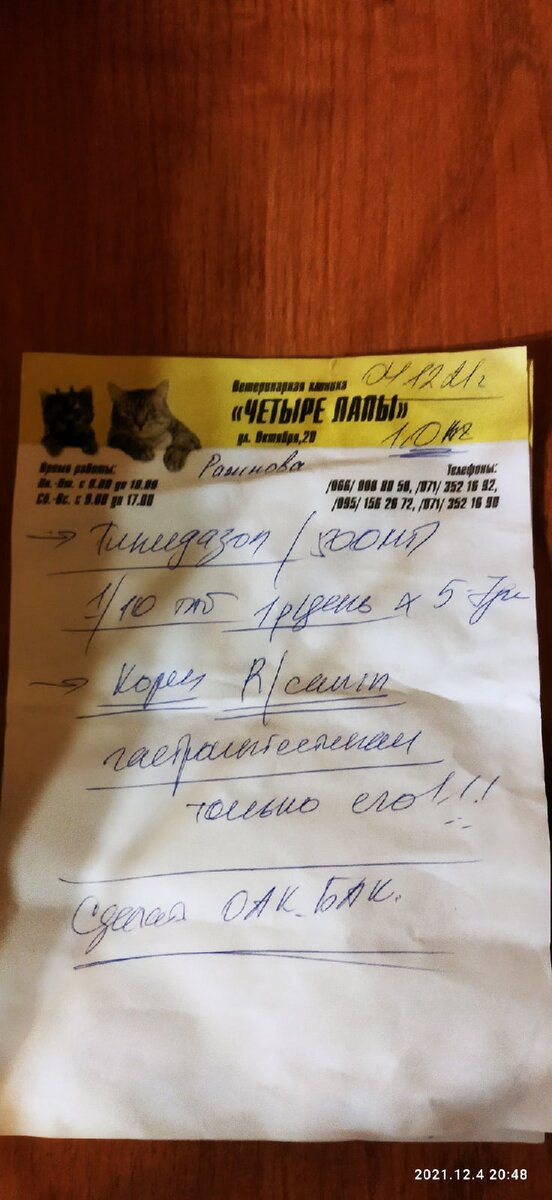 Ветеринарная клиника 04 12 21г
«ЧЕТЫРЕ ЛАПЫ»
ул. Октября,20 1,0 кг
Время работы:
Пн.-Пт. с 8.00 до 18.00
Сб.-Вс. с 9.00 до 17.00
Телефоны:
/071/ 352 16 92,
/095/ 156 26 72, /071/ 352 16 90
→ Тинидазол / 500мг
1/10 таб 1р/день х 5
→ Корм R/
гастроинтестинал
только его!!!
ОАК. БАК.
2021.12.4 20:48